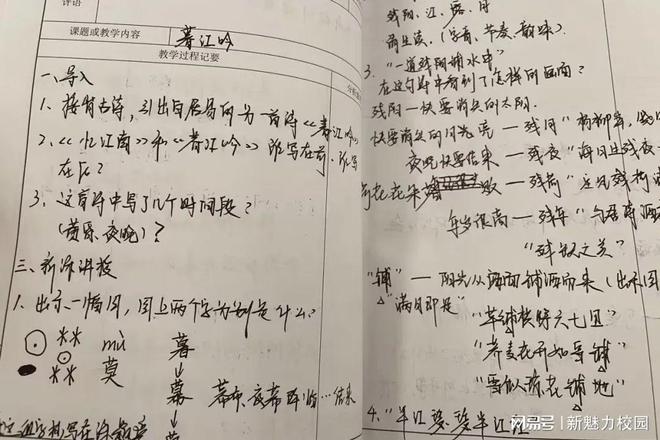 评语
课题或教学内容 暮江吟
教学过程记要
一、导入
1、接背古诗,引出白居易的另一首诗《暮江吟》
2、《忆江南》和《暮江吟》所写在前,所写
在后?
3、这首诗中写了几个时间段?
(黄昏、夜晚)?
三、新济讲授
1、出示一幅图,图上两个字分别是什么?
mù 暮
莫 幕
幕布、夜幕降临…结束
残阳、江、露、月
(字音、节奏、韵味)
3.“一道残阳铺水中”
在这句诗中看到了怎样的画面?
残阳—快要消失的太阳.
快要消失的月亮—残月“杨柳岸,
夜晚快要结束—残夜“海日生残夜
荷花花朵 败—残荷“
年岁很高—残年“
“残缺之美”
“铺”—阳光从西面铺洒而来(出示图
“满目即是”
“草铺横野六七里”
“荞麦花开如雪铺”
“雪似琼花铺地”
4.“半江瑟瑟半江红
网易号 | 新魅力校园